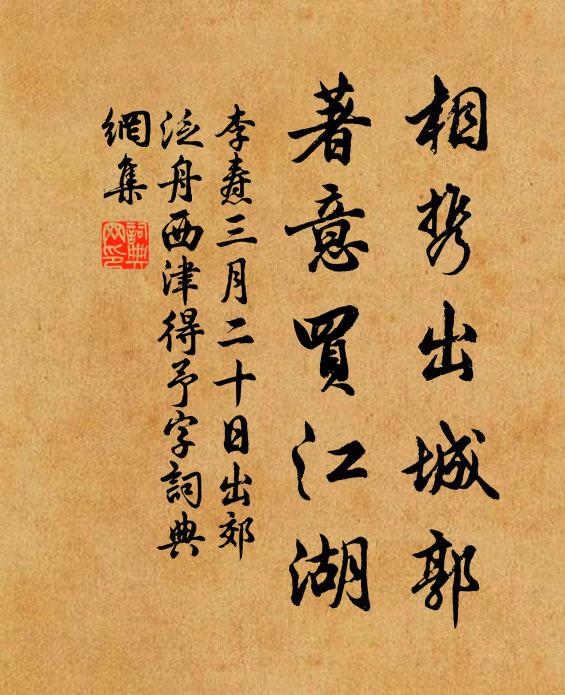 相携出城郭
著意買江湖
李燾三月二十日出郊
泛舟西津得予字詞典
網集
詞典
网印